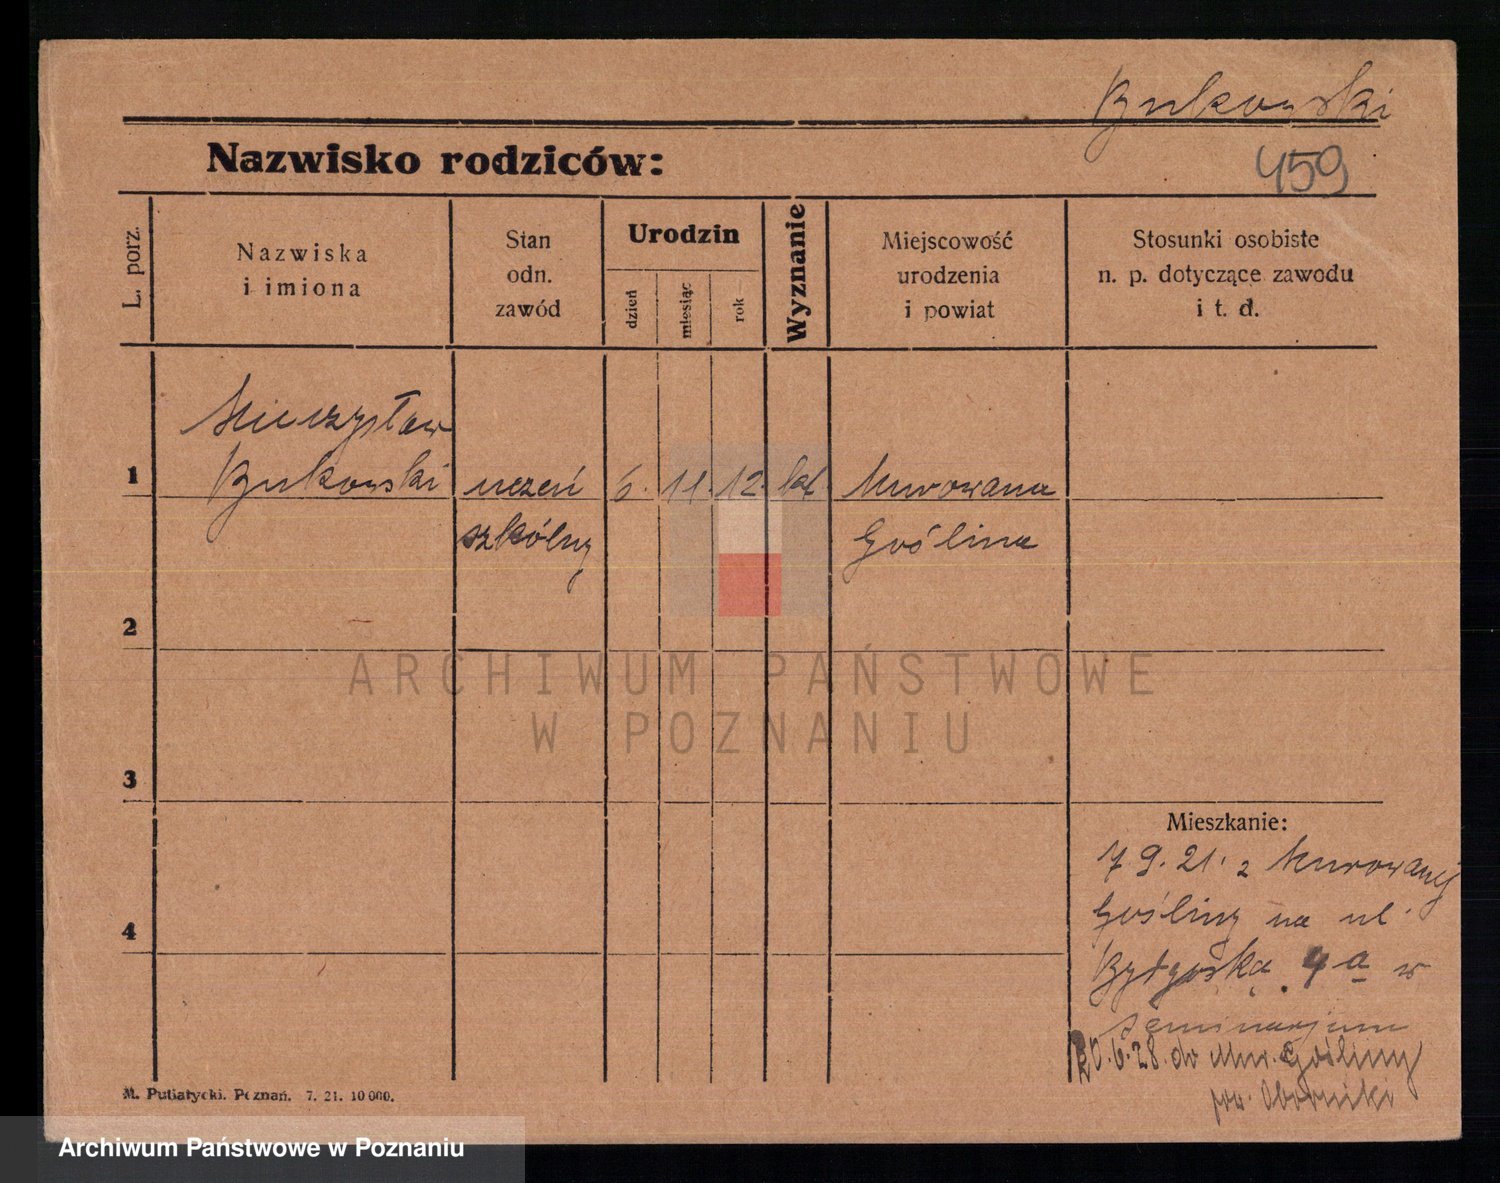 Bukowski
Nazwisko rodziców:
459
L. porz.
Nazwiska
i imiona
Stan
odn.
zawód
Urodzin
dzień
miesiąc
rok
Wyznanie
Miejscowość
urodzenia
i powiat
Stosunki osobiste
n. p. dotyczące zawodu
i t. d.
Mieczysław
1 Bukowski uczeń 6. 11. 12. kat Murowana
szkólny Goślina
2
3
4
Mieszkanie:
7.9.21. z Murowanej
Gośliny na ul.
Bydgoska 4a w
Seminarjum
20.6.28. do Mur. Gośliny
pow. Oborniki
M. Putiatycki. Poznań. 7. 21. 10 000.
ARCHIWUM PAŃSTWOWE
W POZNANIU
Archiwum Państwowe w Poznaniu